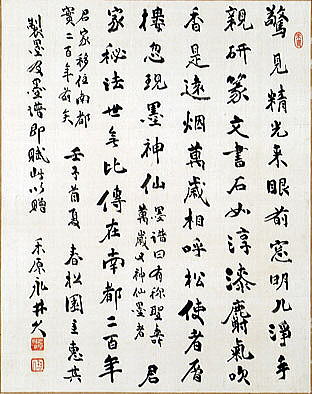 驚見精光来眼前窓明几淨手
親研篆文書石如淳漆麝氣吹
香是遠烟萬歳相呼松使者層
樓忽現墨神仙
墨譜曰有稱聖壽
萬歳又神仙墨者
君
家秘法世無比傳在南都二百年
君家移住南都
實二百年前矣
壬子首夏 春松園主恵其
製墨及墨譜即賦此以贈
禾原永井久